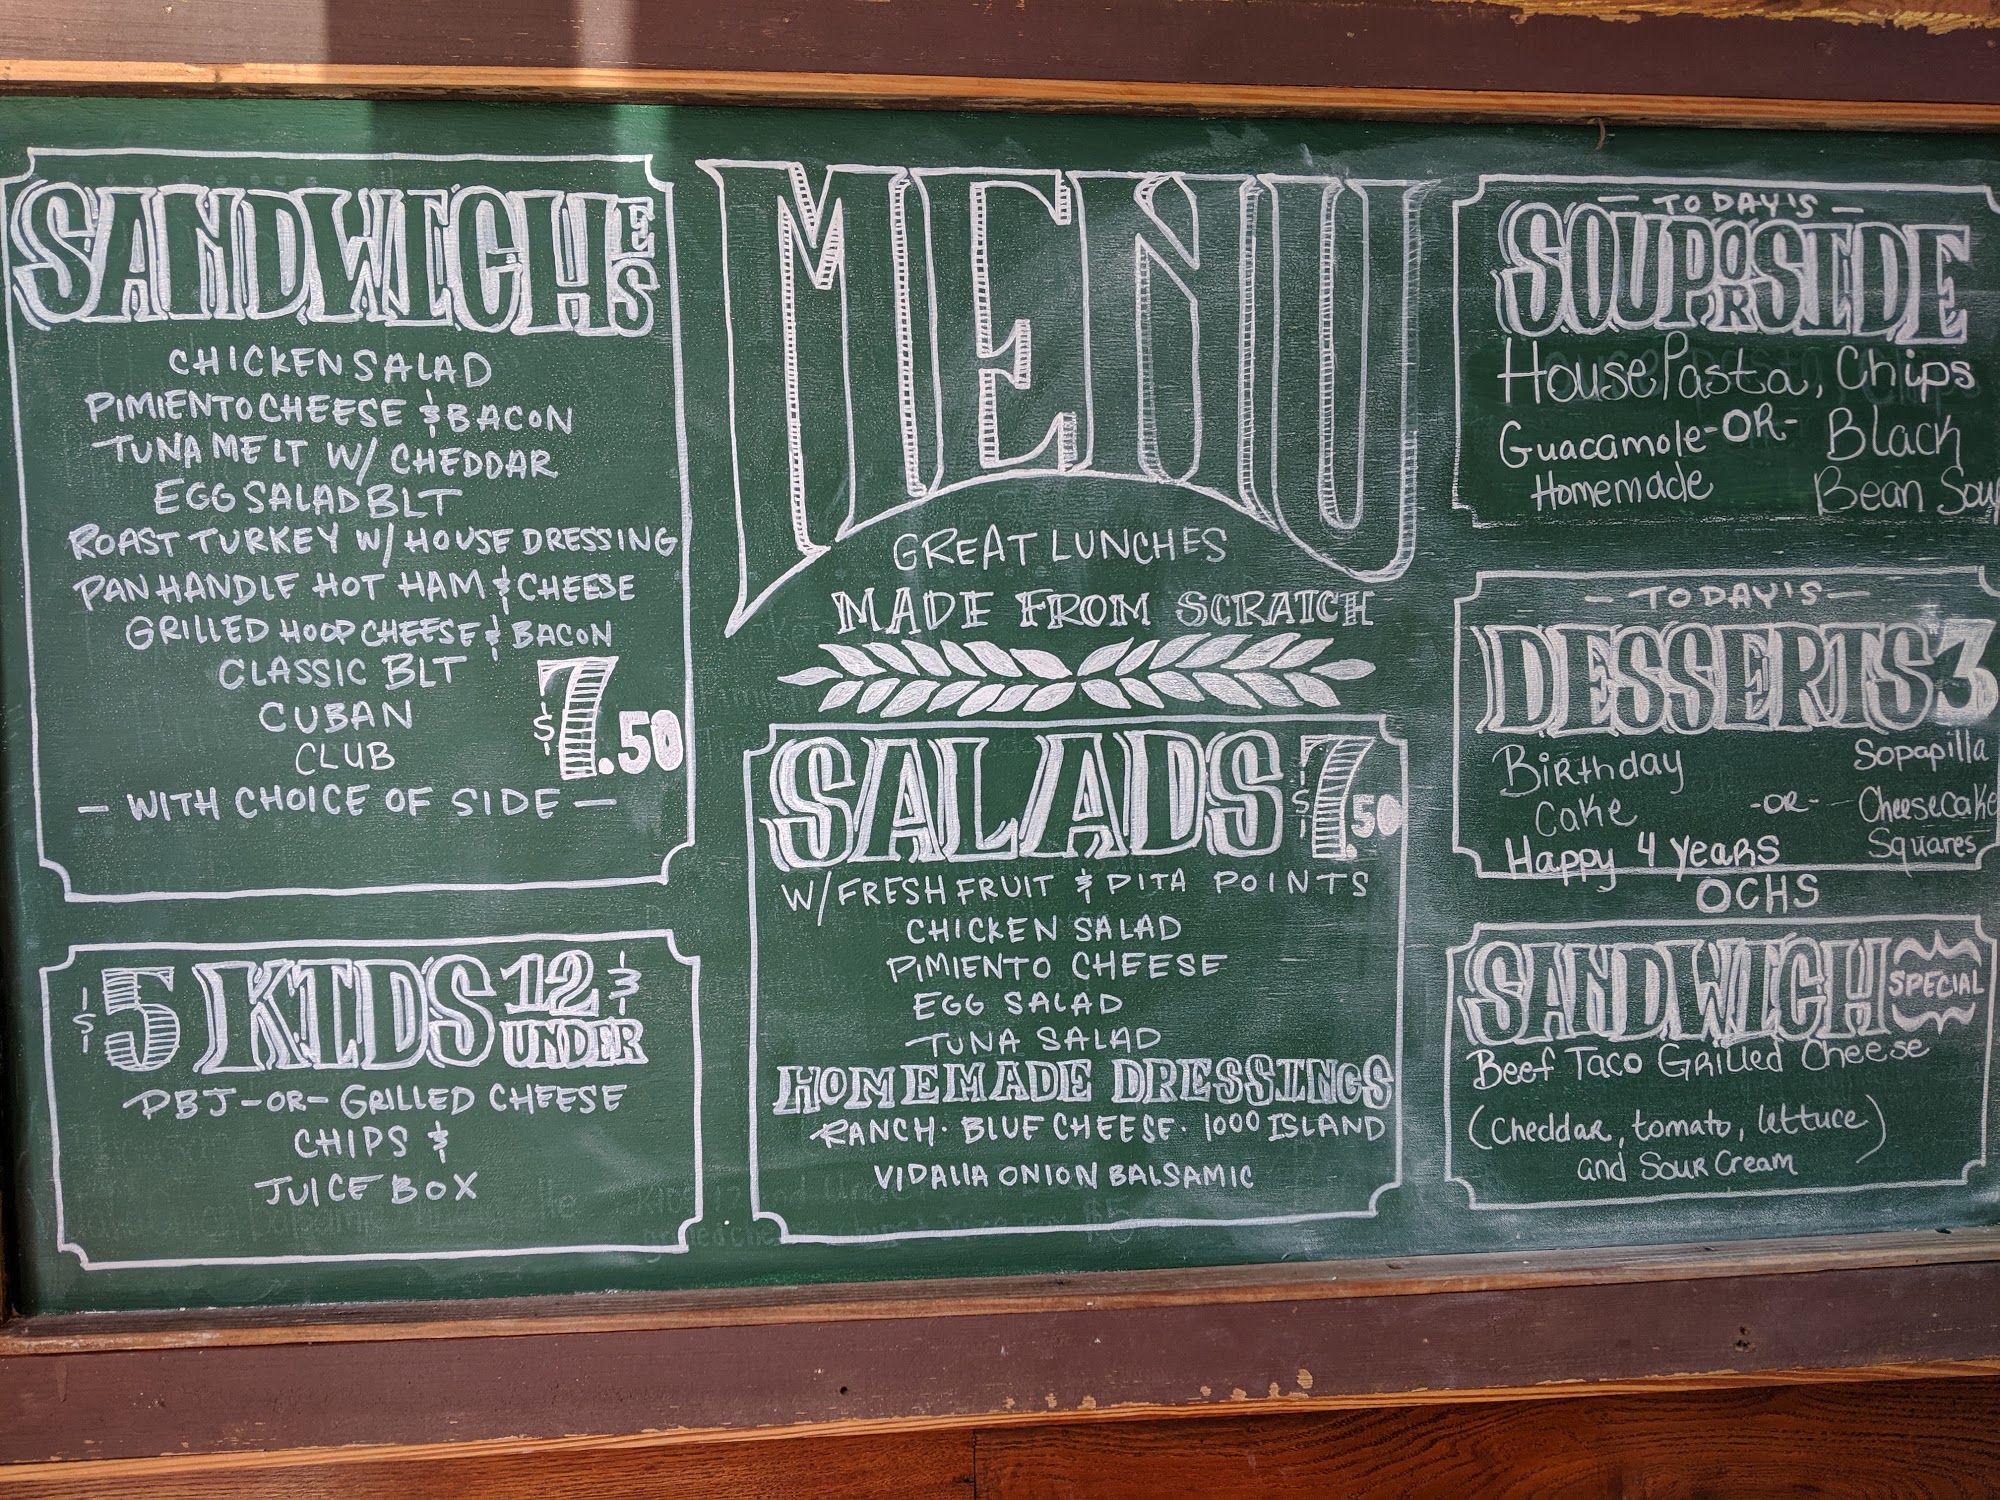 SANDWICHES
CHICKEN SALAD
PIMIENTO CHEESE & BACON
TUNA MELT W/ CHEDDAR
EGG SALAD BLT
ROAST TURKEY W/ HOUSE DRESSING
PANHANDLE HOT HAM & CHEESE
GRILLED HOOP CHEESE & BACON
CLASSIC BLT
CUBAN
CLUB
$7.50
- WITH CHOICE OF SIDE -
$5 KIDS 12 & UNDER
PBJ -OR- GRILLED CHEESE
CHIPS &
JUICE BOX
MENU
GREAT LUNCHES
MADE FROM SCRATCH
SALADS $7.50
W/ FRESH FRUIT & PITA POINTS
CHICKEN SALAD
PIMIENTO CHEESE
EGG SALAD
TUNA SALAD
HOMEMADE DRESSINGS
RANCH · BLUE CHEESE · 1000 ISLAND
VIDALIA ONION BALSAMIC
- TODAY'S -
SOUP OR SIDE
House Pasta, Chips
Guacamole -OR- Black
Homemade Bean Soup
- TODAY'S -
DESSERTS $3
Birthday Sopapilla
Cake -OR- Cheesecake
Happy 4 Years Squares
OCHS
SANDWICH SPECIAL
Beef Taco Grilled Cheese
(Cheddar, tomato, lettuce)
and Sour Cream